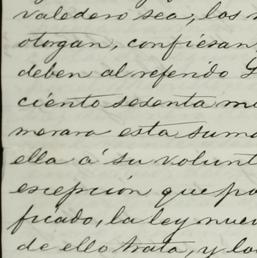 valedero sea, los
otorgan, confiesan,
deben al referido
ciento sesenta
morara esta suma
ella á su volunt
escepción que po
ficado, la ley nuev
de ello trata, y lo